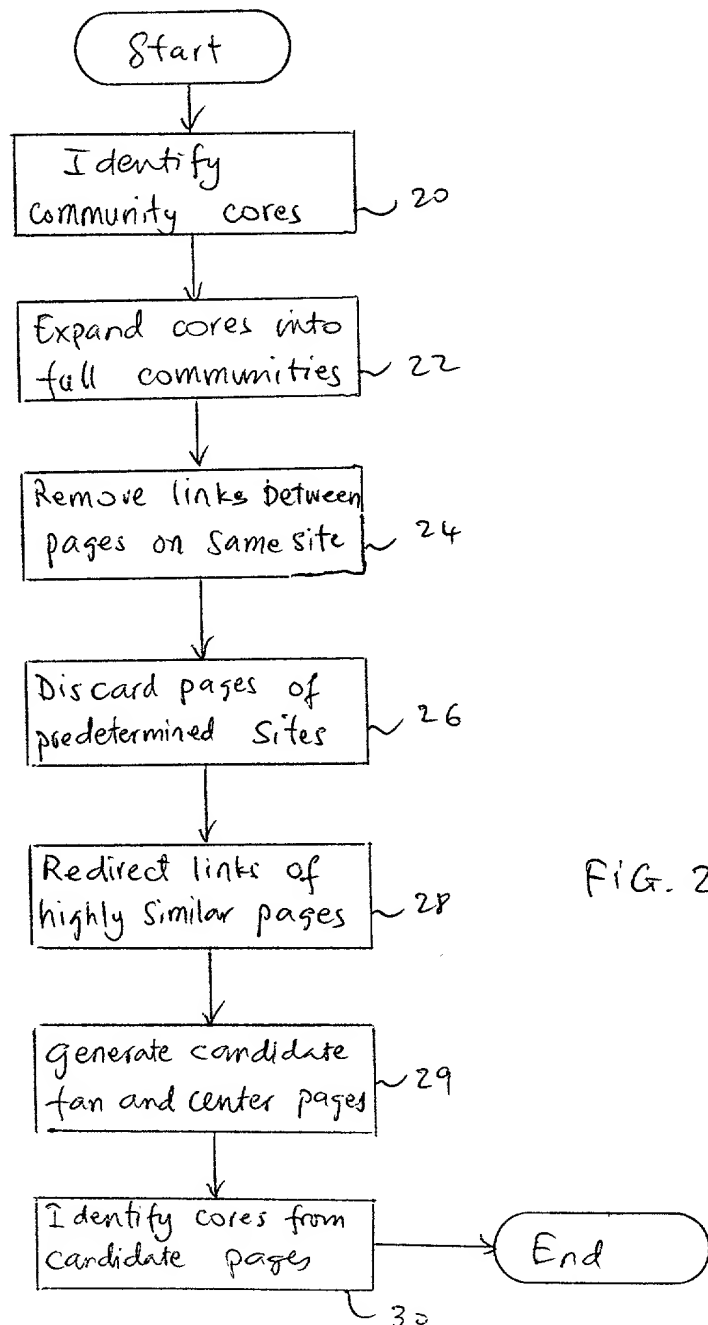 Start
Identify
community cores
20
Expand cores into
full communities
22
Remove links between
pages on same site
24
Discard pages of
predetermined sites
26
Redirect links of
highly similar pages
28
FIG. 2
generate candidate
fan and center pages
29
Identify cores from
candidate pages
30
End